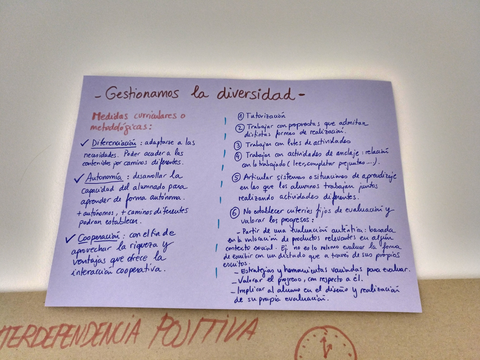 - Gestionamos la diversidad -
Medidas curriculares o
metodológicas:
✓ Diferenciación: adaptarse a las
necesidades. Poder acceder a los
contenidos por caminos diferentes.
✓ Autonomía: desarrollar la
capacidad del alumnado para
aprender de forma autónoma.
+ autónomos, + caminos diferentes
podrán establecer.
✓ Cooperación: con el fin de
aprovechar la riqueza y
ventajas que ofrece la
interacción cooperativa.
① Tutorización
② Trabajar con propuestas que admitan
distintas formas de realización.
③ Trabajar con lotes de actividades.
④ Trabajar con actividades de anclaje: relación
con lo trabajado (leer, completar preguntas...).
⑤ Articular sistemas o situaciones de aprendizaje
en las que los alumnos trabajan juntos
realizando actividades diferentes.
⑥ No establecer criterios fijos de evaluación y
valorar los progresos:
- Partir de una evaluación auténtica: basada
en la valoración de productos relevantes en algún
contexto social. Ej: no es lo mismo evaluar la forma
de escribir con un dictado que a través de sus propios
escritos.
- Estrategias y herramientas variadas para evaluar.
- Valorar el progreso, con respecto a él.
- Implicar al alumno en el diseño y realización
de su propia evaluación.
INTERDEPENDENCIA POSITIVA